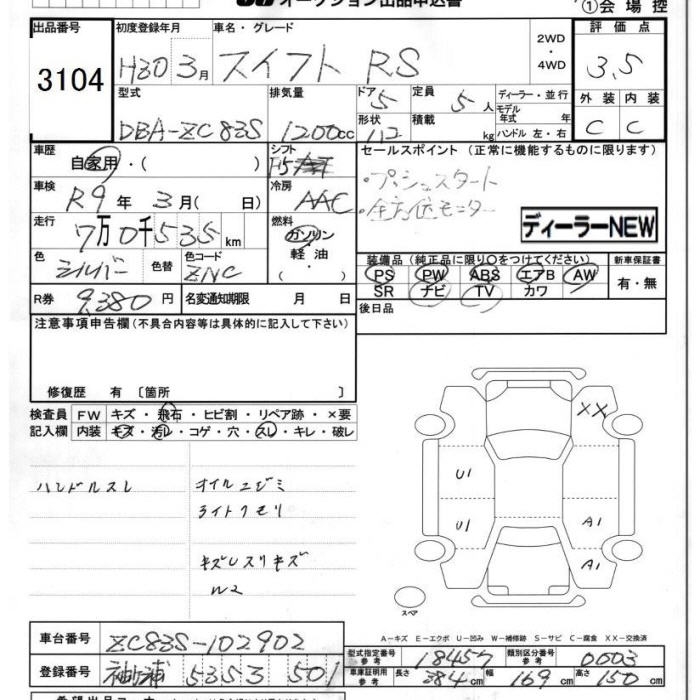 オークション出品申込書
①会場控
出品番号 初度登録年月 車名・グレード 2WD・4WD 評価点
3104 H30 3月 スイフト RS 3.5
型式 排気量 ドア 5 定員 5人 ディーラー・並行 外装 内装
モデル年式 年
DBA-ZC83S 1200cc 形状 積載 kg ハンドル 左・右 C C
車歴 シフト セールスポイント (正常に機能するものに限ります)
自家用・( ) F5
・プッシュスタート
車検 R9年 3月( 日) 冷房 AAC
・全方位モニター
走行 7万0千535km 燃料 ガソリン・軽油・
ディーラーNEW
色 シルバー 色替 色コード ZNC
装備品 (純正品に限り○をつけてください) 新車保証書
PS PW ABS エアB AW 有・無
SR ナビ TV カワ
R券 9,380円 名変通知期限 月 日
後日品
注意事項申告欄(不具合内容等は具体的に記入して下さい)
修復歴 有 〔箇所 〕
検査員 FW キズ・飛石・ヒビ割・リペア跡・×要
記入欄 内装 キズ・汚レ・コゲ・穴・スレ・キレ・破レ
XX
U1
U1
A1
A1
ハンドルスレ オイルニジミ
ライトクモリ
キズUスリキズ
W2
スペア
A-キズ E-エクボ U-凹み W-補修跡 S-サビ C-腐食 XX-交換済
車台番号 ZC83S-102902
型式指定番号 参考 18457 類別区分番号 参考 0003
登録番号 袖ヶ浦 535 501
車庫証明用 参考 長さ 384cm 幅 169cm 高さ 150cm